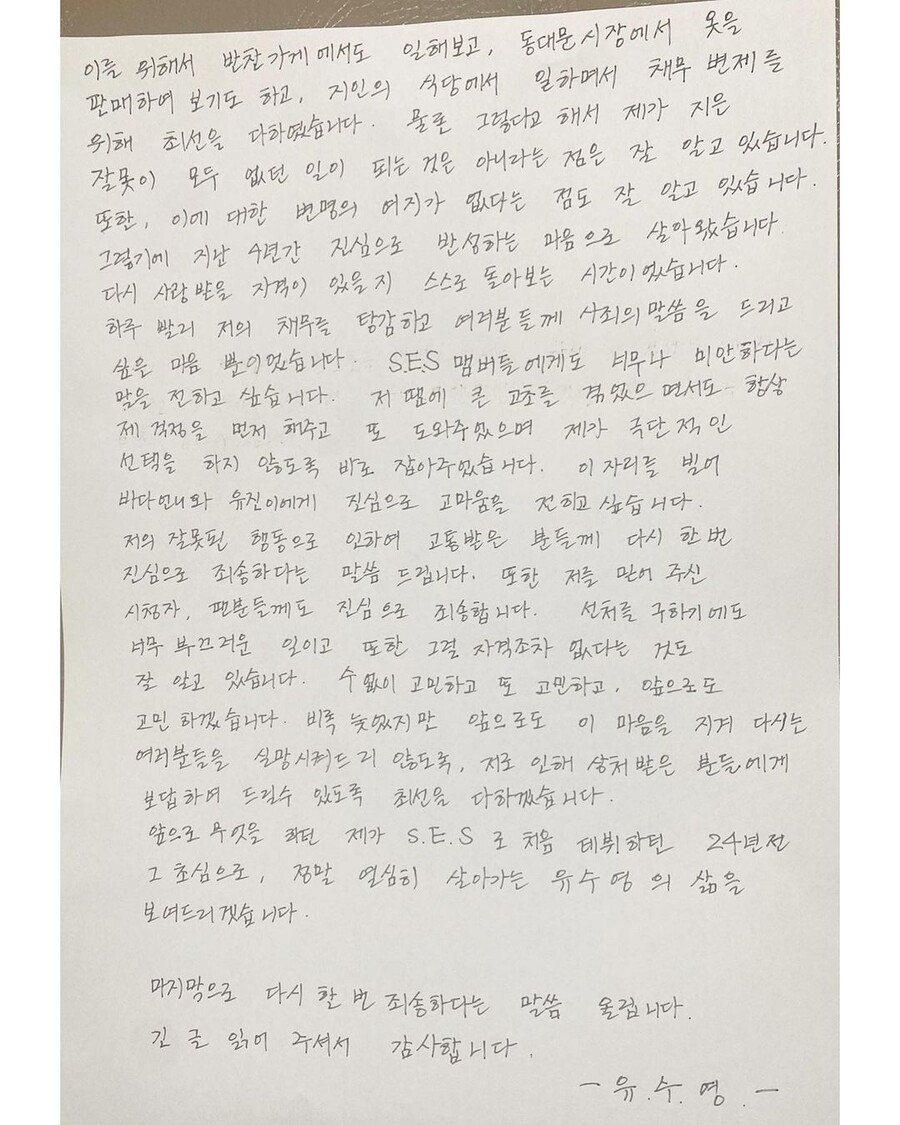 이를 위해서 반찬가게에서도 일해보고, 동대문시장에서 옷을
판매하여 보기도 하고, 지인의 식당에서 일하면서 채무 변제를
위해 최선을 다하였습니다. 물론 그렇다고 해서 제가 지은
잘못이 모두 없던 일이 되는 것은 아니라는 점은 잘 알고 있습니다.
또한, 이에 대한 변명의 여지가 없다는 점도 잘 알고 있습니다.
그렇기에 지난 4년간 진심으로 반성하는 마음으로 살아왔습니다.
다시 사랑 받을 자격이 있을지 스스로 돌아보는 시간이었습니다.
하루 빨리 저의 채무를 탕감하고 여러분들께 사죄의 말씀을 드리고
싶은 마음 뿐이었습니다. S.E.S 맴버들에게도 너무나 미안하다는
말을 전하고 싶습니다. 저 땜에 큰 고초를 겪었으면서도 항상
제 걱정을 먼저 해주고 또 도와주었으며 제가 극단적인
선택을 하지 않도록 바로 잡아주었습니다. 이 자리를 빌어
바다언니와 유진이에게 진심으로 고마움을 전하고 싶습니다.
저의 잘못된 행동으로 인하여 고통받은 분들께 다시 한번
진심으로 죄송하다는 말씀 드립니다. 또한 저를 믿어 주신
시청자, 팬분들께도 진심으로 죄송합니다. 선처를 구하기에도
너무 부끄러운 일이고 또한 그럴 자격조차 없다는 것도
잘 알고 있습니다. 수없이 고민하고 또 고민하고, 앞으로도
고민 하겠습니다. 비록 늦었지만 앞으로도 이 마음을 지겨 다시는
여러분들을 실망시켜드리 않도록, 저로 인해 상처 받은 분들에게
보답하여 드릴수 있도록 최선을 다하겠습니다.
앞으로 무엇을 하던 제가 S.E.S 로 처음 데뷔하던 24년전
그 초심으로, 정말 열심히 살아가는 유수영의 삶을
보여드리겠습니다.
마지막으로 다시 한 번 죄송하다는 말씀 올립니다.
긴 글 읽어 주셔서 감사합니다.
- 유.수.영. -